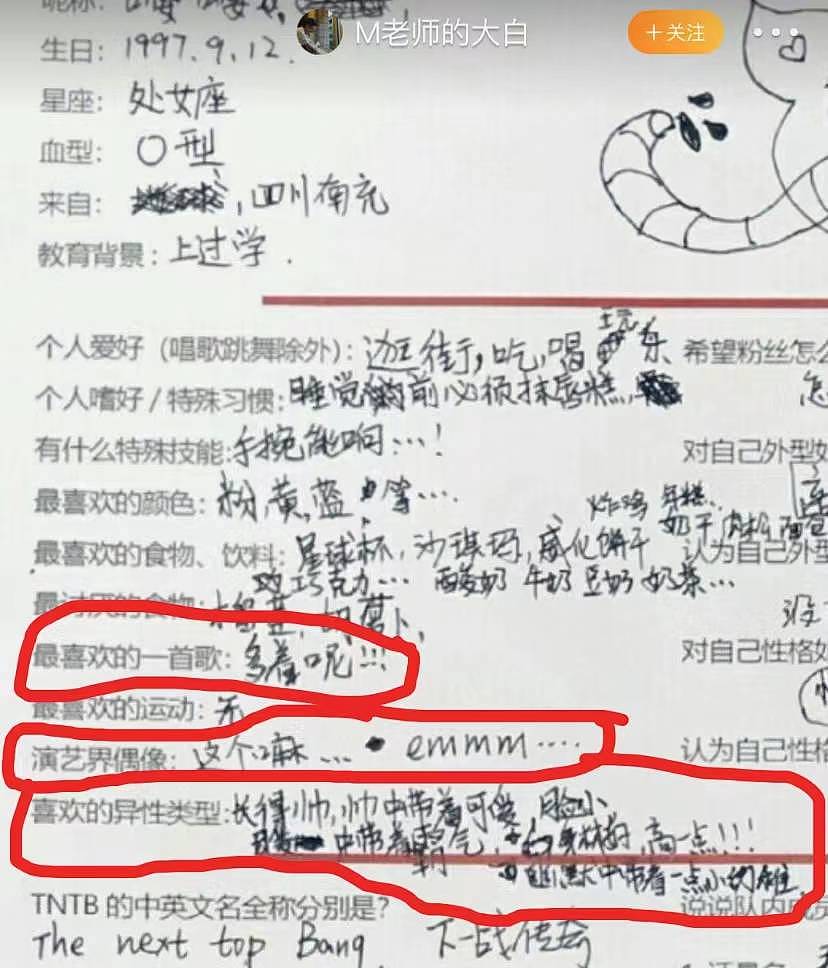 昵称:
M老师的大白
+关注
生日: 1997.9.12.
星座: 处女座
血型: O型
来自: ,四川南充
教育背景: 上过学.
个人爱好(唱歌跳舞除外): 逛街,吃,喝 玩 乐、
希望粉丝怎么
个人嗜好/特殊习惯: 睡觉前必须抹唇膏,
怎
有什么特殊技能: 手挽能响…!
对自己外型如
最喜欢的颜色: 粉,黄,蓝 等….
炸鸡 年糕..
最喜欢的食物、饮料: 星球杯,沙琪玛,威化饼干
奶干 肉松面包
认为自己外型
巧克力… 酸奶 牛奶 豆奶 奶茶…
最讨厌的食物: 萝卜,
没
最喜欢的一首歌: 多着呢!!!
对自己性格如
最喜欢的运动: 无
演艺界偶像: 这个嘛… emmm….
认为自己性格
喜欢的异性类型: 长得帅,帅中带着可爱, 脸小
中带着霸气, 身材好,高一点!!!
幽默中带着一点小
说说队内成员
TNTB的中英文名全称分别是?
The next top Bang 下一战传奇